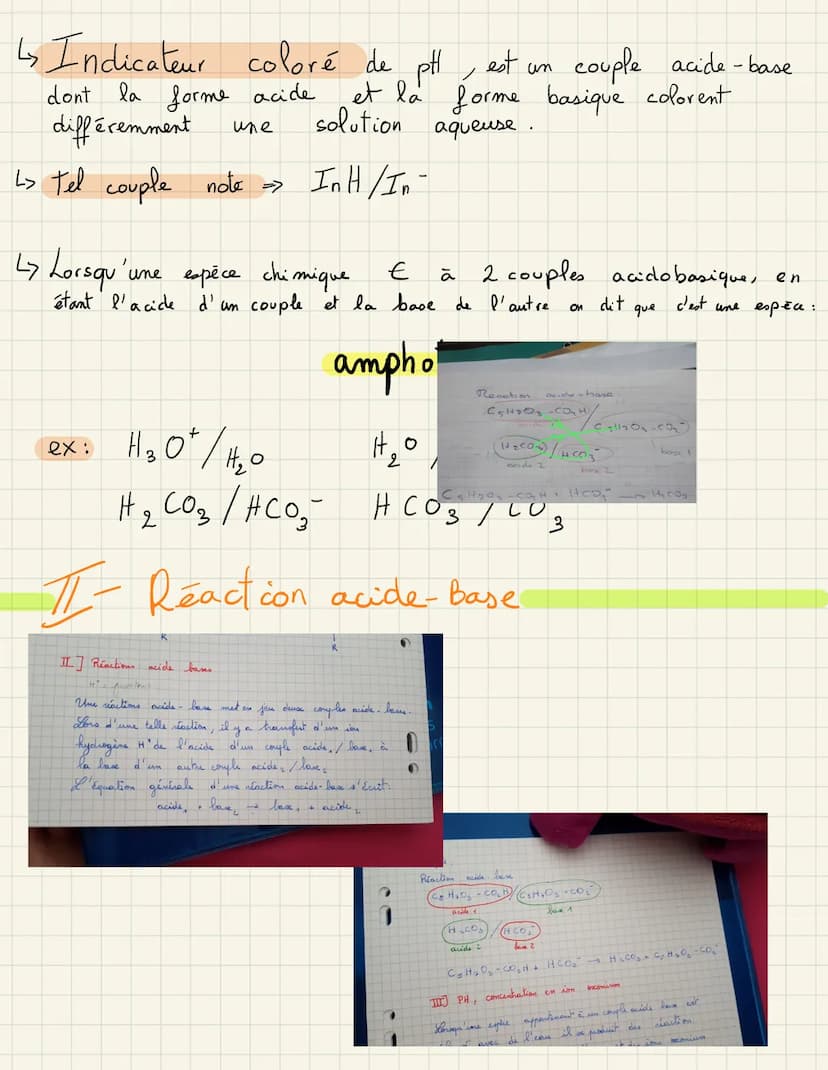 ↳ Indicateur coloré de pH, est un couple acide-base
dont la forme acide et la forme basique colorent
différemment une solution aqueuse.
↳ Tel couple note ⇒ InH/In⁻
↳ Lorsqu'une espèce chimique € à 2 couples acidobasique, en
étant l'acide d'un couple et la base de l'autre on dit que c'est une espèce :
ampho
ex: H₃O⁺/H₂O H₂O
H₂CO₃/HCO₃⁻ HCO₃ / CO₃
Réaction acide-base
C₅H₇O₃-CO₂H/
C₅H₇O₃-CO₂⁻
H₂CO₃/HCO₃⁻ base 1
acide 2 base 2
C₅H₇O₃-CO₂H + HCO₃⁻ → H₂CO₃
II- Réaction acide-Base
R R
II] Réactions acide base
Une réactions acide-base met en jeu deux couples acide-base.
Lors d'une telle réaction, il y a transfert d'un ion
hydrogène H⁺ de l'acide d'un couple acide₁/base₁ à
la base d'un autre couple acide₂/base₂
L'équation générale d'une réaction acide-base s'écrit:
acide₁ + base₂ → base₁ + acide₂
Réaction acide base
C₅H₇O₃-CO₂H/C₅H₇O₃-CO₂⁻
acide 1 base 1
H₂CO₃/HCO₃⁻
acide 2 base 2
C₅H₇O₃-CO₂H + HCO₃⁻ → H₂CO₃ + C₅H₇O₃-CO₂⁻
III] PH, concentration en ion oxonium
Lorsqu'une espèce appartenant à un couple acide base est
avec de l'eau il se produit des réaction
ions oxonium